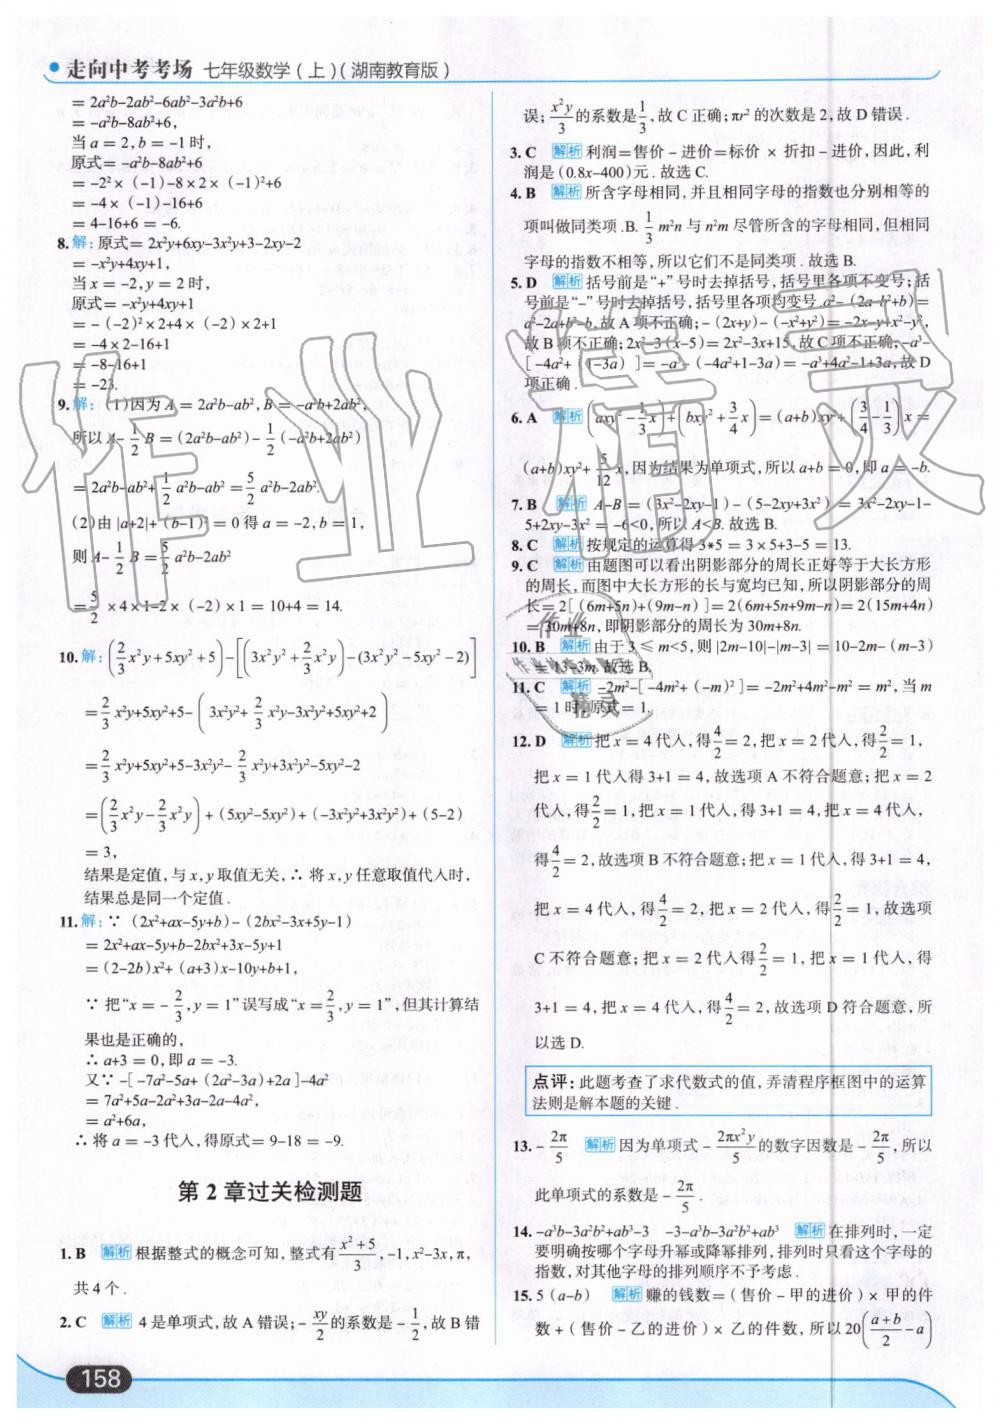 走向中考考场 七年级数学(上)(湖南教育版)
= 2a²b-2ab²-6ab²-3a²b+6
= -a²b-8ab²+6,
当 a = 2, b = -1 时,
原式= -a²b-8ab²+6
= -2²×(-1)-8×2×(-1)²+6
= -4×(-1)-16+6
= 4-16+6 = -6.
8. 解: 原式= 2x²y+6xy-3x²y+3-2xy-2
= -x²y+4xy+1,
当 x = -2, y = 2 时,
原式= -x²y+4xy+1
= -(-2)²×2+4×(-2)×2+1
= -4×2-16+1
= -8-16+1
= -23.
9. 解: (1)因为 A = 2a²b-ab², B = -a²b+2ab²,
所以 A-1/2 B = (2a²b-ab²)-1/2(-a²b+2ab²)
= 2a²b-ab²+1/2 a²b-ab² = 5/2 a²b-2ab².
(2)由 |a+2|+(b-1)² = 0 得 a = -2, b = 1,
则 A-1/2 B = 5/2 a²b-2ab²
= 5/2×4×1-2×(-2)×1 = 10+4 = 14.
10. 解: (2/3 x²y+5xy²+5)-[(3x²y²+2/3 x²y)-(3x²y²-5xy²-2)]
= 2/3 x²y+5xy²+5-(3x²y²+2/3 x²y-3x²y²+5xy²+2)
= 2/3 x²y+5xy²+5-3x²y²-2/3 x²y+3x²y²-5xy²-2
= (2/3 x²y-2/3 x²y)+(5xy²-5xy²)+(-3x²y²+3x²y²)+(5-2)
= 3,
结果是定值, 与 x, y 取值无关, ∴ 将 x, y 任意取值代入时,
结果总是同一个定值.
11. 解: ∵ (2x²+ax-5y+b)-(2bx²-3x+5y-1)
= 2x²+ax-5y+b-2bx²+3x-5y+1
= (2-2b)x²+(a+3)x-10y+b+1,
∵ 把“x = -2/3, y = 1”误写成“x = 2/3, y = 1”, 但其计算结
果也是正确的,
∴ a+3 = 0, 即 a = -3.
又∵ -[-7a²-5a+(2a²-3a)+2a]-4a²
= 7a²+5a-2a²+3a-2a-4a²,
= a²+6a,
∴ 将 a = -3 代入, 得原式= 9-18 = -9.
第 2 章过关检测题
1. B 解析 根据整式的概念可知, 整式有 (x²+5)/3, -1, x²-3x, π,
共 4 个.
2. C 解析 4 是单项式, 故 A 错误; -xy/2 的系数是 -1/2, 故 B 错
误; x²y/3 的系数是 1/3, 故 C 正确; πr² 的次数是 2, 故 D 错误.
3. C 解析 利润=售价-进价=标价×折扣-进价, 因此, 利
润是(0.8x-400)元. 故选 C.
4. B 解析 所含字母相同, 并且相同字母的指数也分别相等的
项叫做同类项. B. 1/3 m²n 与 n²m 尽管所含的字母相同, 但相同
字母的指数不相等, 所以它们不是同类项. 故选 B.
5. D 解析 括号前是“+”号时去掉括号, 括号里各项不变号; 括
号前是“-”号时去掉括号, 括号里各项均变号. a²-(2a-b²+b) =
a²-2a+b²-b, 故 A 项不正确; -(2x+y)-(-x²+y²) = -2x-y+x²-y²,
故 B 项不正确; 2x²-3(x-5) = 2x²-3x+15, 故 C 项不正确; -a³-
[-4a²+(1-3a)] = -a³-(-4a²+1-3a) = -a³+4a²-1+3a, 故 D
项正确.
6. A 解析 (axy²-1/3 x)+(bxy²+3/4 x) = (a+b)xy²+(3/4-1/3)x =
(a+b)xy²+5/12 x, 因为结果为单项式, 所以 a+b = 0, 即 a = -b.
7. B 解析 A-B = (3x²-2xy-1)-(5-2xy+3x²) = 3x²-2xy-1-
5+2xy-3x² = -6<0, 所以 A<B. 故选 B.
8. C 解析 按规定的运算得 3*5 = 3×5+3-5 = 13.
9. C 解析 由题图可以看出阴影部分的周长正好等于大长方形
的周长, 而图中大长方形的长与宽均已知, 所以阴影部分的周
长= 2[(6m+5n)+(9m-n)] = 2(6m+5n+9m-n) = 2(15m+4n)
= 30m+8n, 即阴影部分的周长为 30m+8n.
10. B 解析 由于 3 ≤ m<5, 则 |2m-10|-|m-3| = 10-2m-(m-3)
= 13-3m. 故选 B.
11. C 解析 -2m²-[-4m²+(-m)²] = -2m²+4m²-m² = m², 当 m
= 1 时, 原式= 1.
12. D 解析 把 x = 4 代入, 得 4/2 = 2, 把 x = 2 代入, 得 2/2 = 1,
把 x = 1 代入得 3+1 = 4, 故选项 A 不符合题意; 把 x = 2
代入, 得 2/2 = 1, 把 x = 1 代入, 得 3+1 = 4, 把 x = 4 代入,
得 4/2 = 2, 故选项 B 不符合题意; 把 x = 1 代入, 得 3+1 = 4,
把 x = 4 代入, 得 4/2 = 2, 把 x = 2 代入, 得 2/2 = 1, 故选项
C 不符合题意; 把 x = 2 代入得 2/2 = 1, 把 x = 1 代入, 得
3+1 = 4, 把 x = 4 代入, 得 4/2 = 2, 故选项 D 符合题意, 所
以选 D.
点评: 此题考查了求代数式的值, 弄清程序框图中的运算
法则是解本题的关键.
13. -2π/5 解析 因为单项式 -2πx²y/5 的数字因数是 -2π/5, 所以
此单项式的系数是 -2π/5.
14. -a³b-3a²b²+ab³-3 -3-a³b-3a²b²+ab³ 解析 在排列时, 一定
要明确按哪个字母升幂或降幂排列, 排列时只看这个字母的
指数, 对其他字母的排列顺序不予考虑.
15. 5(a-b) 解析 赚的钱数=(售价-甲的进价)×甲的件
数+(售价-乙的进价)×乙的件数, 所以 20((a+b)/2-a)
158
作业精灵
作业
精灵